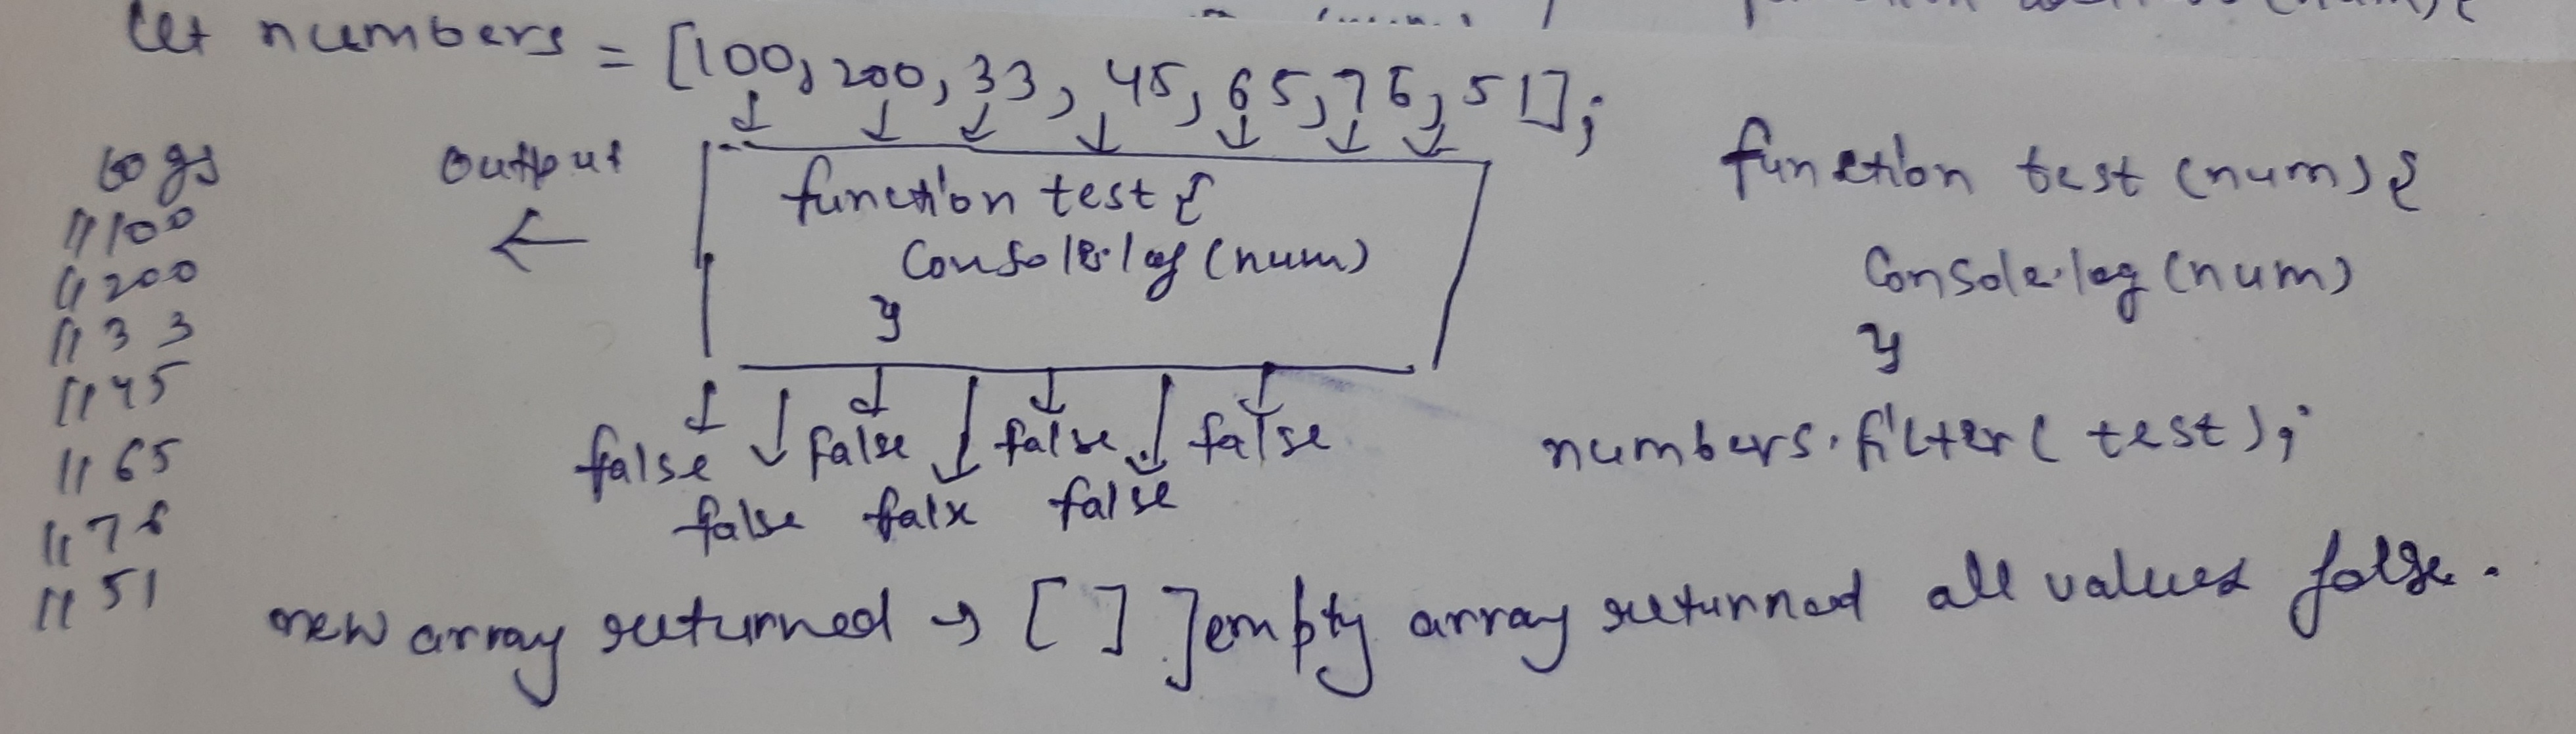 let numbers = [100, 200, 33, 45, 65, 76, 51];
logs
//100
//200
//33
//45
//65
//76
//51
output
←
function test {
console.log (num)
}
false false false false
false false false
function test (num) {
console.log (num)
}
numbers.filter( test );
new array returned → [ ] ] empty array returned all values false.